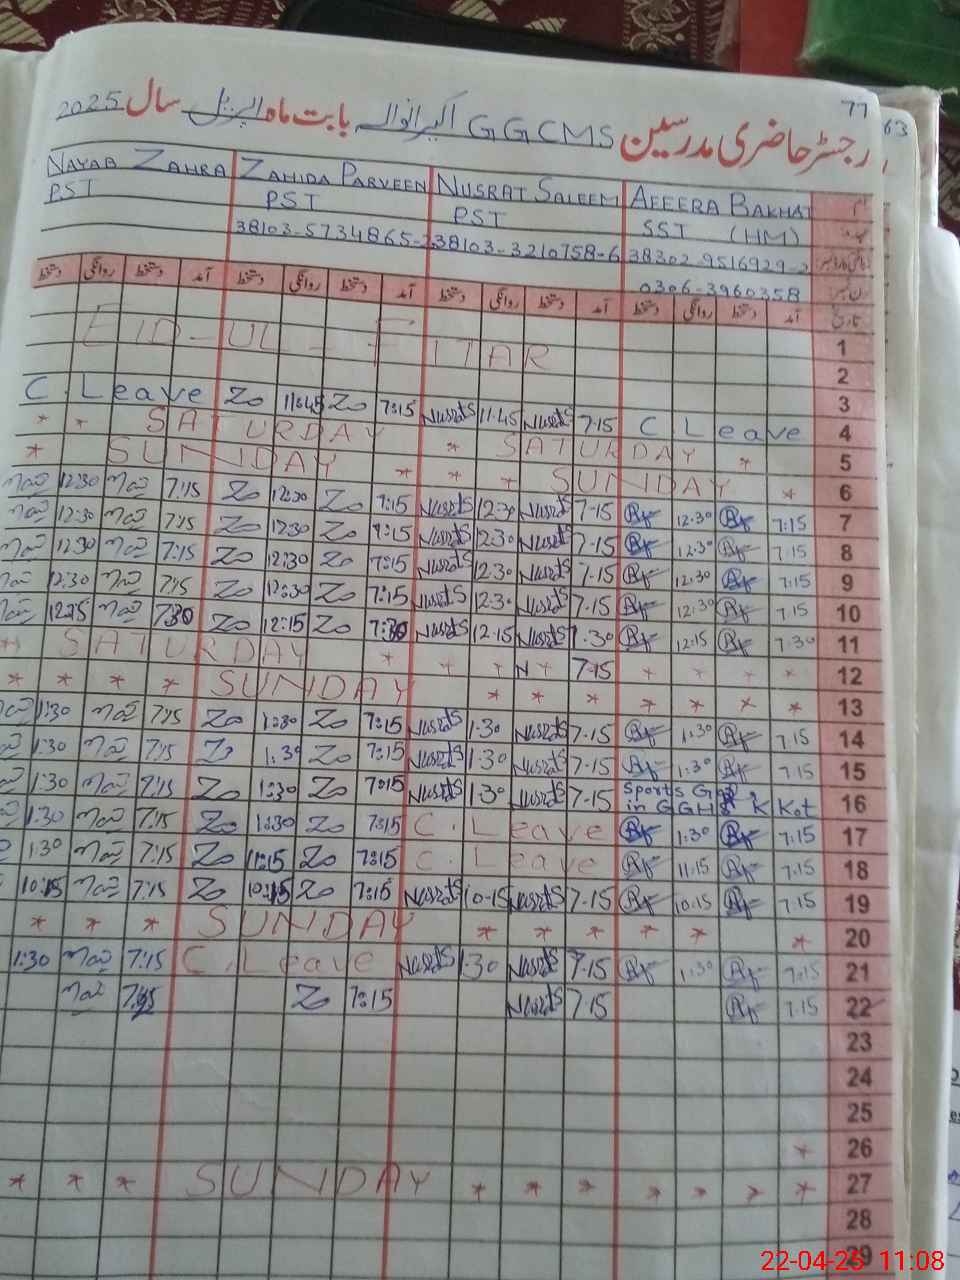 77
رجسٹر حاضری مدرسین GGCMS اکبرانوالہ بابت ماہ اپریل سال 2025
63
NAYAB ZAHRA ZAHIDA PARVEEN NUSRAT SALEEM AFEERA BAKHAT نام
PST PST PST SST (HM) عہدہ
38103-5734865-2 38103-3210758-6 38302-9516929-2
0306-3960358
دستخط روانگی دستخط آمد دستخط روانگی دستخط آمد دستخط روانگی دستخط آمد دستخط روانگی دستخط آمد تاریخ
EID-UL-FITAR 1
2
3
C. Leave Zo 11:45 Zo 7:15 NusratS 11.45 NusratS 7-15 C. Leave 4
* * SATURDAY * SATURDAY * 5
* SUNDAY * * * SUNDAY * 6
12:30 7:15 Zo 12:30 Zo 7:15 NusratS 12:30 NusratS 7-15 12:30 7:15 7
12:30 7:15 Zo 12:30 Zo 7:15 NusratS 12:30 NusratS 7-15 12:30 7:15 8
12:30 7:15 Zo 12:30 Zo 7:15 NusratS 12:30 NusratS 7-15 12:30 7:15 9
12:30 7:15 Zo 12:30 Zo 7:15 NusratS 12:30 NusratS 7-15 12:30 7:15 10
12:15 7:30 Zo 12:15 Zo 7:30 NusratS 12.15 NusratS 7.30 12:15 7:30 11
* SATURDAY * + + N + 7-15 * * * * 12
* * * * SUNDAY * * * * * * * 13
1:30 7:15 Zo 1:30 Zo 7:15 NusratS 1:30 NusratS 7-15 1:30 7:15 14
1:30 7:15 Zo 1:30 Zo 7:15 NusratS 1:30 NusratS 7-15 1:30 7:15 15
1:30 7:15 Zo 1:30 Zo 7:15 NusratS 1:30 NusratS 7-15 Sports in GGHS K Kot 16
1:30 7:15 Zo 1:30 Zo 7:15 C. Leave 1:30 7:15 17
1:30 7:15 Zo 11:15 Zo 7:15 C. Leave 11.15 7:15 18
10:15 7:15 Zo 10:15 Zo 7:15 NusratS 10-15 NusratS 7-15 10.15 7:15 19
* * * SUNDAY * * * * * * 20
1:30 7:15 C. Leave NusratS 1:30 NusratS 7-15 1:30 7:15 21
7:15 Zo 7:15 NusratS 7-15 7:15 22
23
24
25
* 26
* * * SUNDAY * * * * * * * 27
28
29
22-04-25 11:08